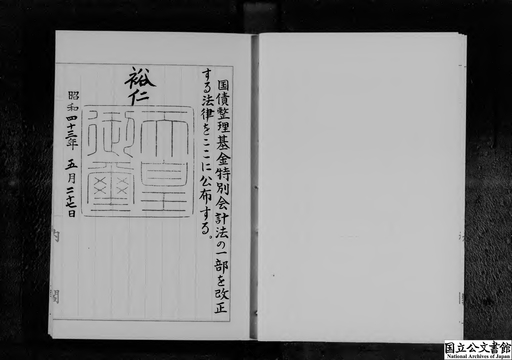 国債整理基金特別会計法の一部を改正
する法律をここに公布する。
裕仁
天皇
御璽
昭和四十三年 五月二十七日
内閣
国立公文書館
National Archives of Japan